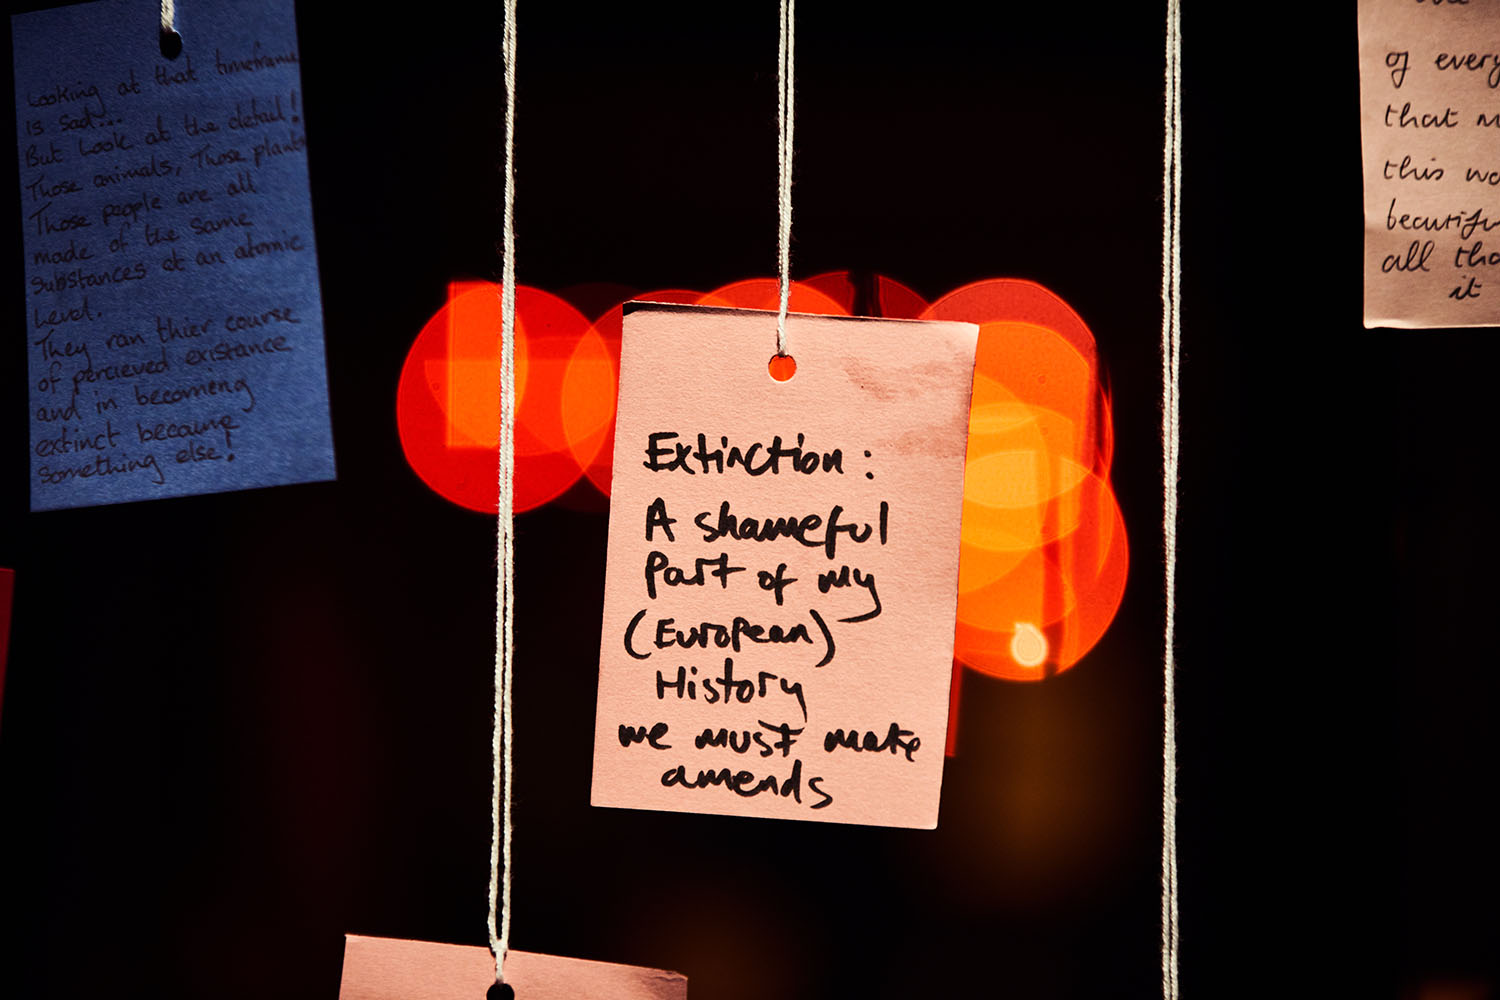 Looking at that timeframe
is sad...
But Look at the detail!
Those animals, Those plants
Those people are all
made of the same
substances at an atomic
Level.
They ran thier course
of percieved existance
and in becomeing
extinct became
something else!
Extinction:
A shameful
Part of my
(European)
History
we must make
amends
of every
that
this
beautifu
all tha
it